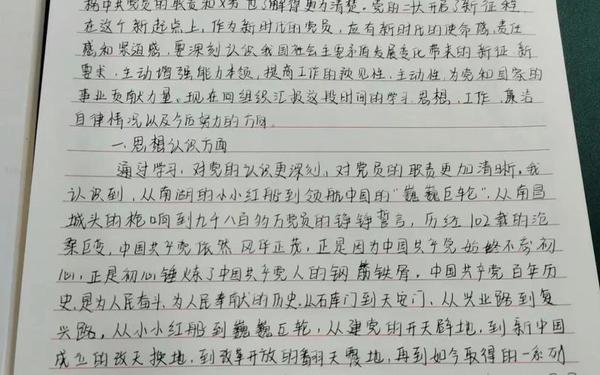 称中共党员的职责和义务也了解得更为清楚。党的二大开启了新征程,
在这个新起点上,作为新时代的党员,应有新时代的使命感,责任
感和紧迫感,更深刻认识我国社会主要矛盾发展变化带来的新征新
要求,主动增强能力本领,提高工作的预见性、主动性,为党和国家的
事业贡献力量。现在向组织汇报这段时间的学习、思想、工作、廉洁
自律情况以及今后努力的方向。
一.思想认识方面
通过学习,对党的认识更深刻,对党员的职责更加清晰。我
认识到,从南湖的小小红船到领航中国的"巍巍巨轮",从南昌
城头的枪响到九千八百多万党员的铮铮誓言,历经102载的沧
桑巨变,中国共产党依然风华正茂,正是因为中国共产党始终不忘初
心,正是初心锤炼了中国共产党人的钢筋铁骨。中国共产党百年历
史,是为人民奋斗、为人民奉献的历史。从石库门到天安门、从兴业路到复
兴路,从小小红船到巍巍巨轮,从建党的开天辟地,到新中国
成立的改天换地,到改革开放的翻天覆地,再到如今取得的一系列